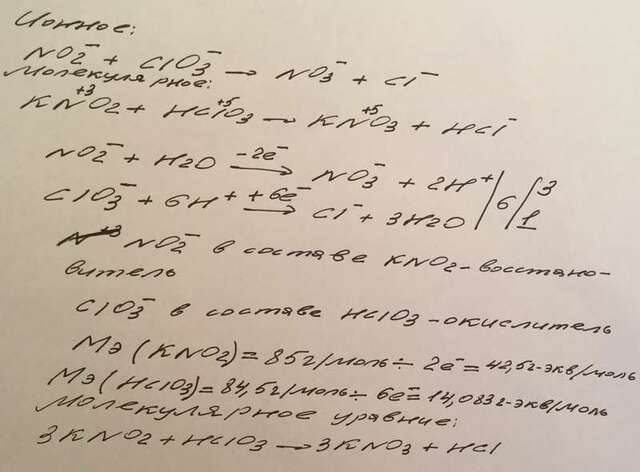 Ионное:
NO2⁻ + ClO3⁻ → NO3⁻ + Cl⁻
Молекулярное:
+3 +5 +5
KNO2 + HClO3 → KNO3 + HCl⁻
NO2⁻ + H2O –2e⁻ → NO3⁻ + 2H⁺ / 6 / 3
ClO3⁻ + 6H⁺ +6e⁻ → Cl⁻ + 3H2O / 6 / 1
NO2⁻ в составе KNO2 - восстано-
витель
ClO3⁻ в составе HClO3 - окислитель
Mэ (KNO2) = 85г/моль ÷ 2e⁻ = 42,5г-экв/моль
Mэ (HClO3) = 84,5г/моль ÷ 6e⁻ = 14,083г-экв/моль
Молекулярное уравние:
3KNO2 + HClO3 → 3KNO3 + HCl